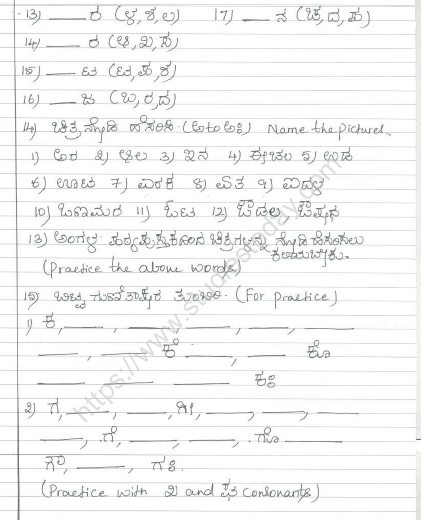 13) ___ ರ (ಳ, ಶ, ಲ) 17) ___ ನ (ಚ, ದ, ಹ)
14) ___ ರ (ಆ, ಖ, ಸ)
15) ___ ಟ (ಟ, ಹ, ಶ)
16) ___ ಜ (ಬ, ರ, ದ)
14) ಚಿತ್ರ ನೋಡಿ ಹೆಸರಿಸಿ. (ಅ to ಅಃ) Name the picture.
1) ಅರ 2) ಆಲ 3) ಇನ 4) ಈಚಲ 5) ಉಡ
6) ಊಟ 7) ಎರಕ 8) ಏತ 9) ಐದಳ
10) ಒಣಮರ 11) ಓಟ 12) ಔಡಲ ಔಷಧ
13) ಅಂಗಳ ಪಠ್ಯಪುಸ್ತಕದಿಂದ ಚಿತ್ರಗಳನ್ನು ನೋಡಿ ಹೆಸರಿಸಲು
ಕಲಿಯಬೇಕು.
(Practice the above words)
15) ಬಿಟ್ಟ ಗುಣಿತಾಕ್ಷರ ತುಂಬಿರಿ. (For practice)
1) ಕ, ___, ___, ___, ___, ___
___, ___ ಕೆ ___, ___ ಕೊ
___ ___ ___ ಕಃ
2) ಗ, ___, ___, ಗೀ, ___, ___, ___
___, ಗೆ, ___, ___, ಗೊ ___
ಗೌ, ___, ಗಃ.
(Practice with ಖ and ಘ consonants)
https://www.studiestoday.com